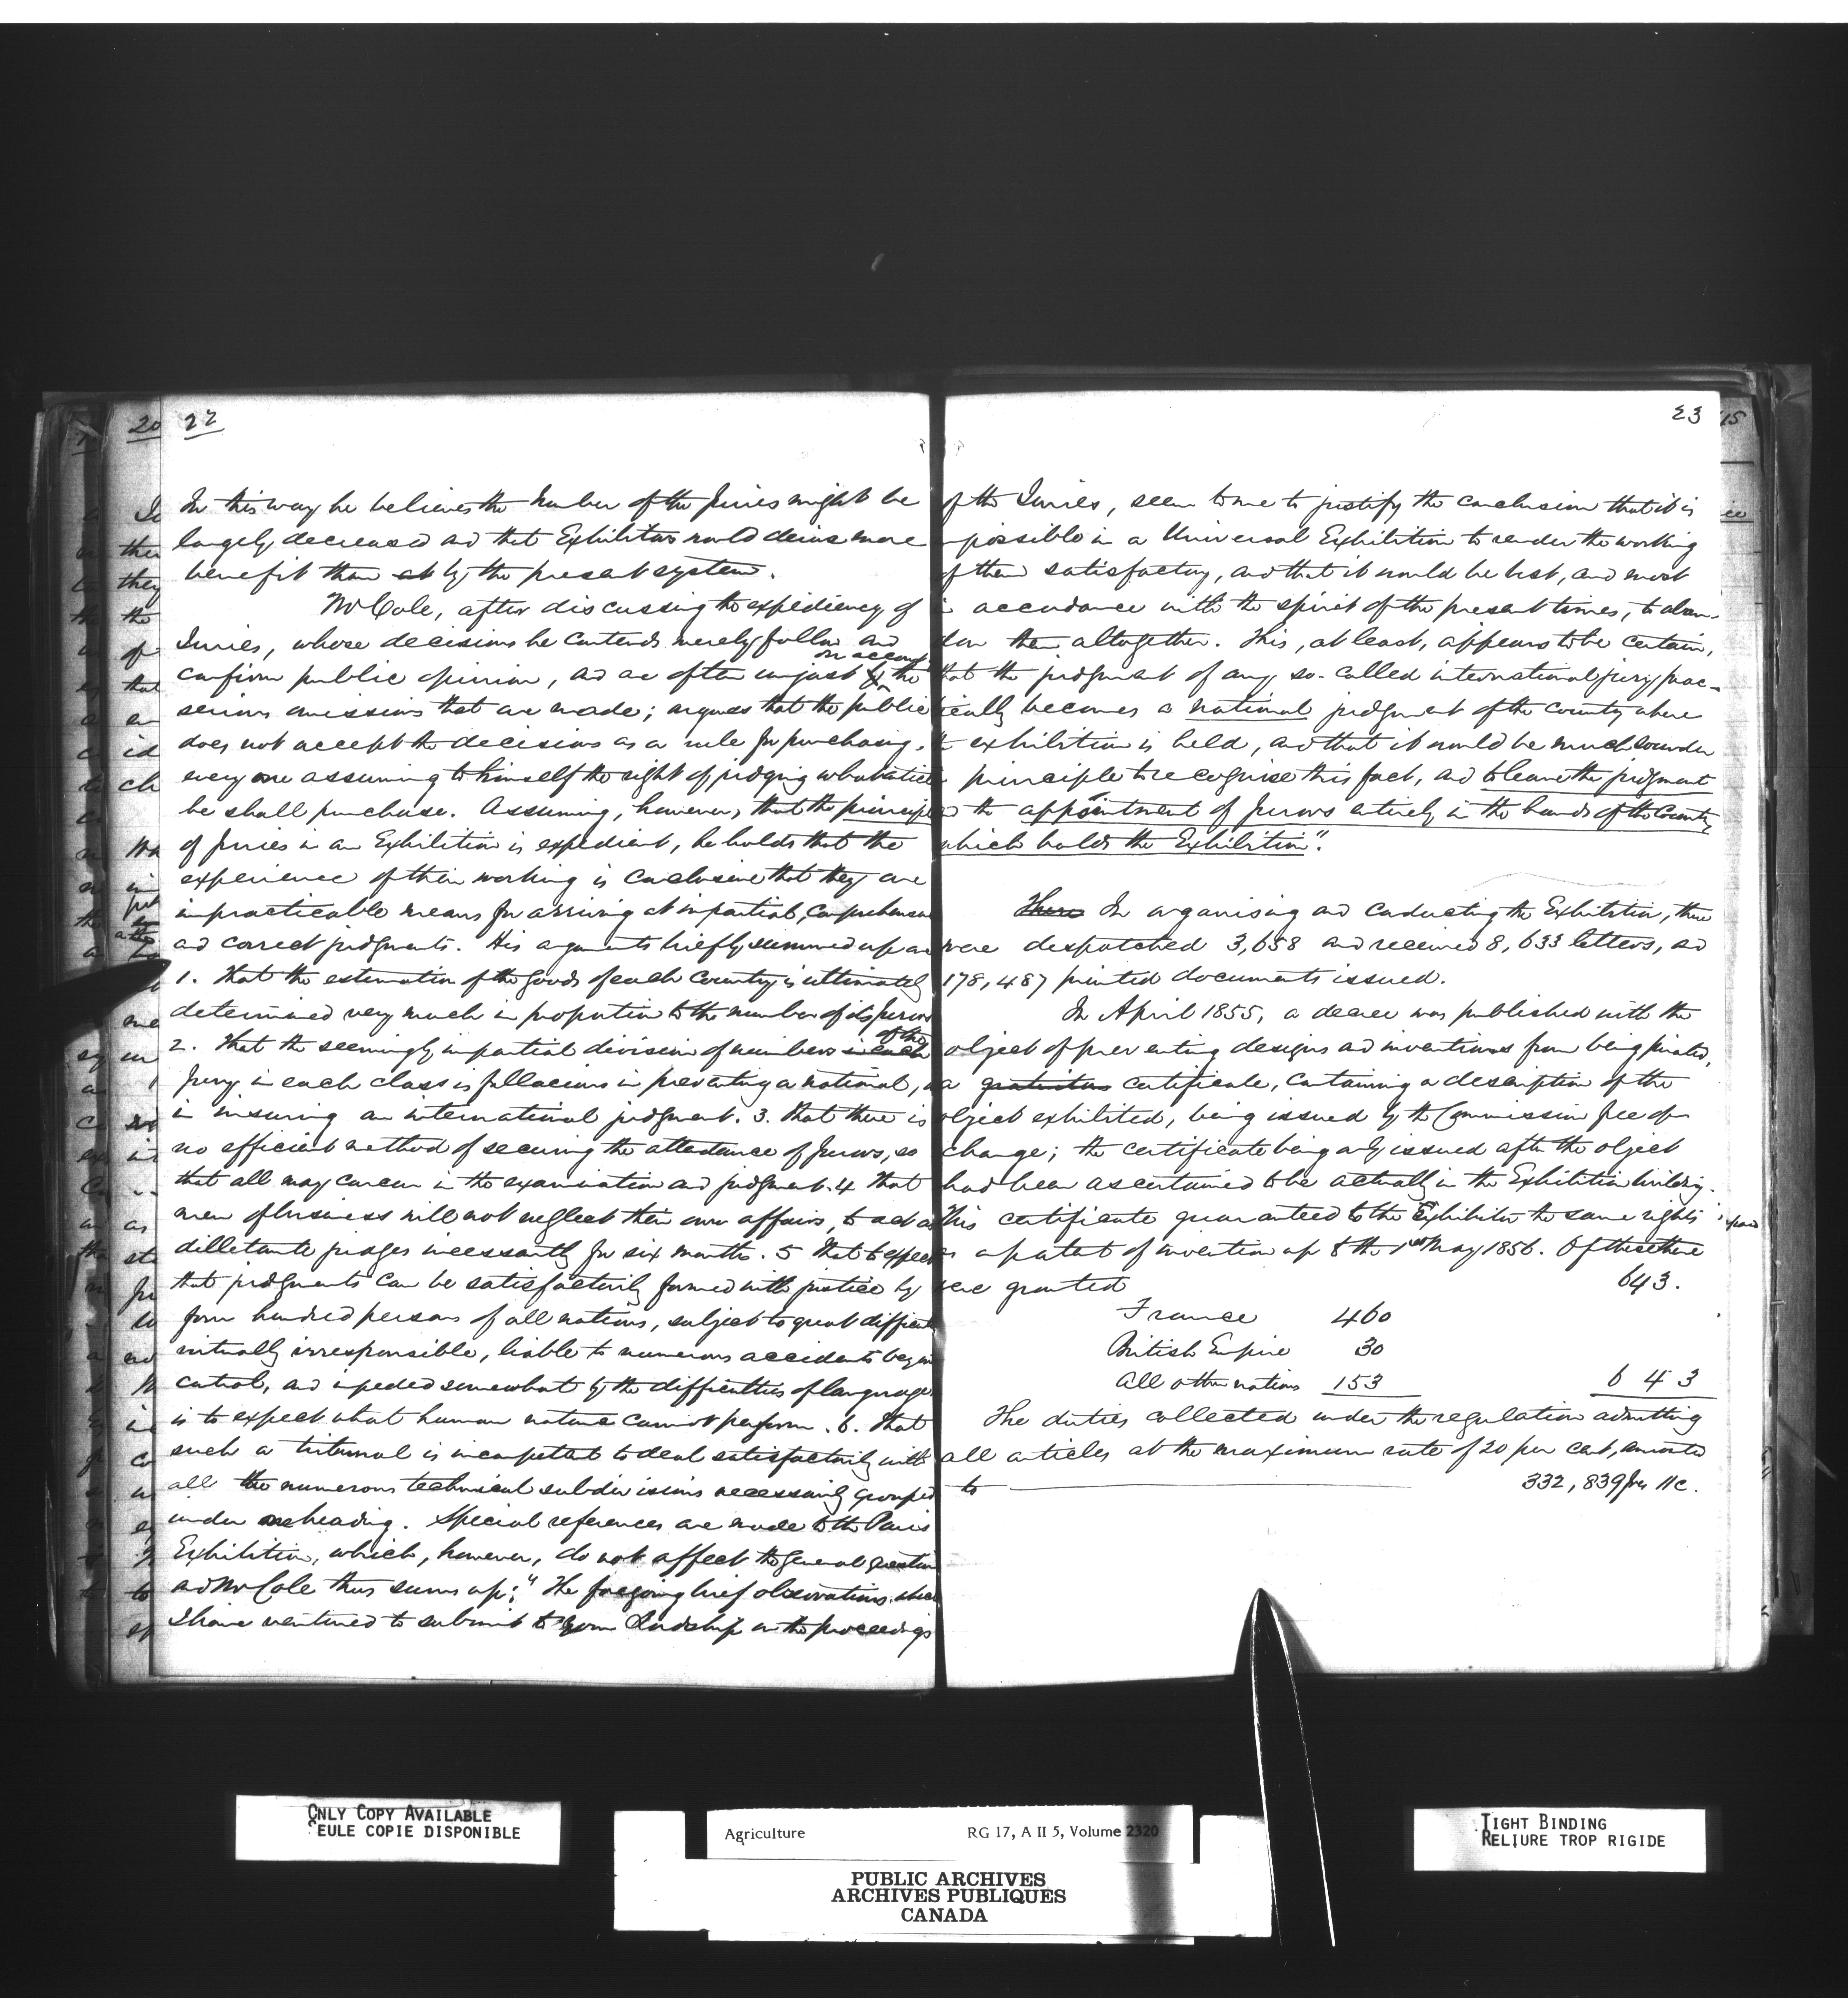 22
In this way he believes the number of the Juries might be
largely decreased and that Exhibitors would derive more
benefit than by the present system.
Mr Cole, after discussing the expediency of
Juries, whose decisions he contends merely follow and
on account
confirm public opinion, and are often unjust the
serious omissions that are made; argues that the public
does not accept the decisions as a rule for purchasing,
every one assuming to himself the right of judging what article
he shall purchase. Assuming, however, that the principle
of juries in an Exhibition is expedient, he holds that the
experience of their working is conclusive that they are
impracticable means for arriving at impartial, comprehensive
and correct judgments. His arguments briefly summed up are
1. That the estimation of the goods of each Country is ultimately
determined very much in proportion to the number of its Jurors
of the
2. That the seemingly impartial division of numbers in each
Jury in each class is fallacious in preventing a national,
in insuring an international judgment. 3. that there is
no efficient method of securing the attendance of Jurors, so
that all may concur in the examination and judgment. 4 that
men of business will not neglect their own affairs, to act as
dilletante judges incessantly for six months. 5 That to expect
that judgments can be satisfactorily formed with justice by
four hundred persons of all nations, subject to great difficulties
virtually irresponsible, liable to numerous accidents beyond
control, and impeded somewhat by the difficulties of language
is to expect what human nature cannot perform. 6. That
such a tribunal is incompetent to deal satisfactorily with
all the numerous technical subdivisions necessarily grouped
under one heading. Special references are made to the Paris
Exhibition, which, however, do not affect the general question
and Mr Cole thus sums up: "The foregoing brief observations which
I have ventured to submit to your Lordship on the proceedings
23
of the Juries, seem to me to justify the conclusion that it is
impossible in a Universal Exhibition to render the working
of them satisfactory, and that it would be best, and most
in accordance with the spirit of the present times, to aban-
don them altogether. This, at least, appears to be certain,
that the judgment of any so-called international jury prac-
tically becomes a national judgment of the country where
the exhibition is held, and that it would be much sounder
principle to recognise this fact, and to leave the judgment
and the appointment of Jurors entirely in the hands of the Country
which holds the Exhibition".
There In organising and conducting the Exhibition, there
were despatched 3,658 and received 8,633 letters, and
178,487 printed documents issued.
In April 1855, a decree was published with the
object of preventing designs and inventions from being pirated,
a gratuitous certificate, containing a description of the
object exhibited, being issued by the Commission free of
charge; the certificate being only issued after the object
had been ascertained to be actually in the Exhibition building.
This certificate guaranteed to the Exhibitor the same rights
as a patent of invention up to the 1st May 1856. Of these there
were granted 643.
France 460
British Empire 30
All other nations 153 643
The duties collected under the regulation admitting
all articles at the maximum rate of 20 per cent, amounted
to 332,839frs 11c.
ONLY COPY AVAILABLE
SEULE COPIE DISPONIBLE
Agriculture RG 17, A II 5, Volume 2320
PUBLIC ARCHIVES
ARCHIVES PUBLIQUES
CANADA
TIGHT BINDING
RELIURE TROP RIGIDE